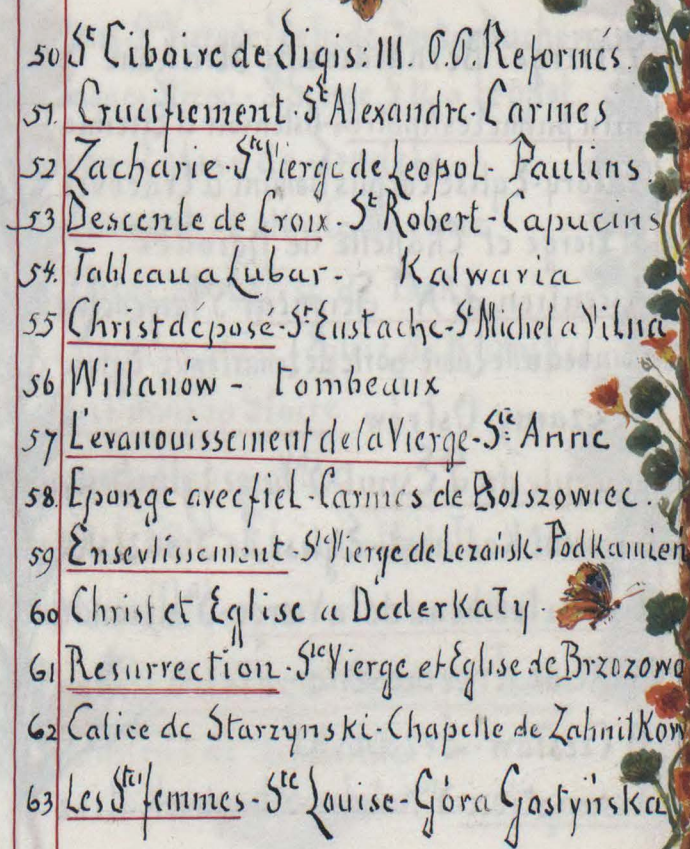 50 St Ciboire de Sigis: III. O.O. Reformés.
51. Crucifiement. St Alexandre. Carmes
52 Zacharie. Ste Vierge de Leopol. Paulins
53 Descente de Croix. St Robert - Capucins
54. Tableau a Lubar. Kalwaria
55 Christ déposé. St Eustache - St Michel a Vilna
56 Willanow - Tombeaux
57 Levanouissement de la Vierge - Ste Anne
58. Eponge avec fiel. Carmes de Bolszowiec.
59 Ensevlissement. Ste Vierge de Lezaïnsk - Podkamień
60 Christ et Eglise a Dederkały.
61 Resurrection. Ste Vierge et Eglise de Brzozowo
62 Calice de Starzynski - Chapelle de Zahnitkow
63 Les Stes femmes - Ste Louise - Góra Gostyńska